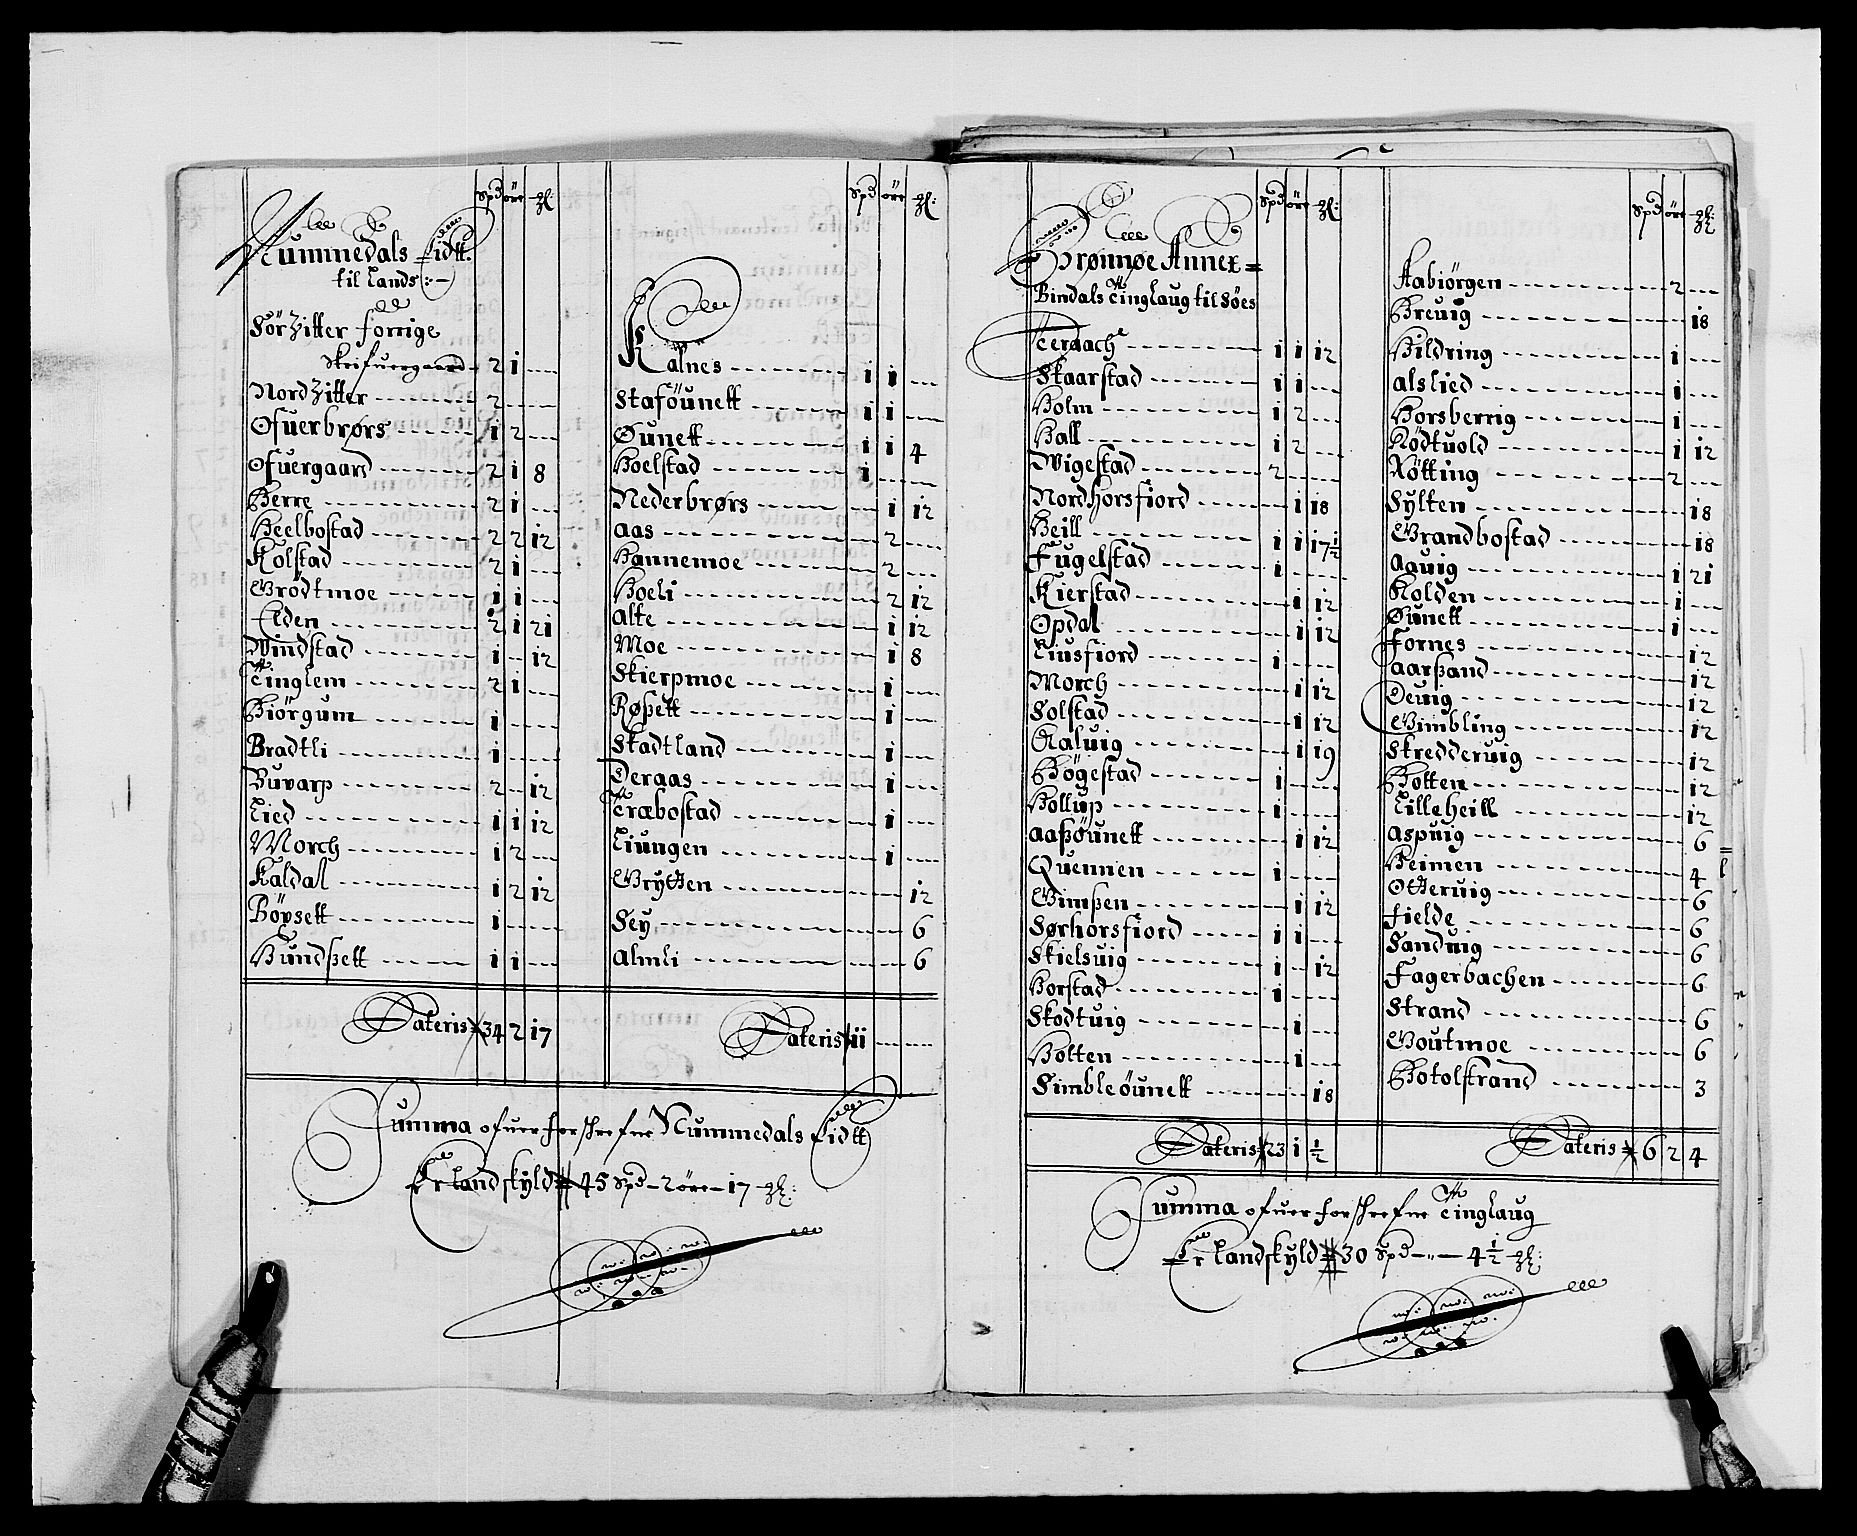 Spd öre ℳ:
Nummedals Eidtt
til Lands:
Sör Zitter forrige
Skrifuergaard - 2 1 -
Nord Zitter - 2 - -
Ofuerbrørs - 1 2 -
Ofuergaard - 2 1 8
Herre - 2 1 -
Heelbostad - 2 2 12
Kolstad - 2 1 -
Grödtmoe - 1 1 -
Elden - 2 1 21
Windstad - 1 - 12
Tinglem - 2 1 -
Biörgum - 1 - -
Bradtli - 1 - -
Buvarp - 2 - 12
Lied - 1 1 12
Morch - 1 2 -
Kaldal - 1 2 12
Böysett - 1 - -
Hundßett - 1 1 -
Lateris 34 2 17
Spd öre
Kalnes - 1 1 -
Staföunett - 1 1 -
Øunett - 1 1 4
Hoelstad - 1 - -
Nederbrørs - 1 12
Aas - 2 -
Hannemoe - 2 -
Hoeli - 2 12
Alte - 1 12
Moe - 1 8
Skierpmoe - 1 -
Røßett - 1 -
Stadtland - 1 -
Deraas - 1 -
Træbostad - 1 -
Liungen - 1 -
Grytten - 12
Sey - 6
Almli - 6
Lateris 11 - -
Summa ofuer forschrefne Nummedals Eidtt
Er Landskyld 45 Spd - 2 öre - 17
Spd öre
Brønnøe Annex =
Bindals Tinglaug til Söes
Teraach - 1 1 12
Skaarstad - 1 1 -
Holm - 1 2 -
Hall - 1 2 -
Wigestad - 2 - -
Nord Horsfiord - 1 18
Heill - 1 1 17½
Fugelstad - 1 - -
Kierstad - 1 12
Opdal - 1 12
Liusfiord - 1 - -
Morch - 1 12
Solstad - 1 12
Naluig - 1 19
Högestad - 1 - -
Hollup - 1 - -
Aaßöunett - 1 12
Quennen - 1 - -
Gimßen - 1 12
Sørhorsfiord - 1 1 -
Skielsuig - 1 - 12
Horstad - 1 - -
Skodtuig - 1 -
Holten - 1 -
Simbleöunett - 18
Lateris 23 1 ½
Spd öre
Aabiörgen - 2 -
Breuig - 18
Hildring - 1 -
Alslied - 1 -
Horsberrig - 1 -
Rödtuold - 1 12
Rötting - 2 -
Sylten - 18
Grandbostad - 18
Aauig - 1 21
Kolden - 1 -
Øunett - 1 -
Fornes - 12
Aarßand - 12
Deuig - 12
Gimbling - 12
Skredderuig - 12
Holten - 12
Lilleheill - 12
Aspuig - 6
Heimen - 4
Otteruig - 6
Fielde - 6
Sanduig - 6
Fagerbachen - 6
Strand - 6
Goutmoe - 6
Hotolstrand - 3
Lateris 6 2 4
Summa ofuer forschrefne Tinglaug
Er Landskyld 30 Spd - " - 4½